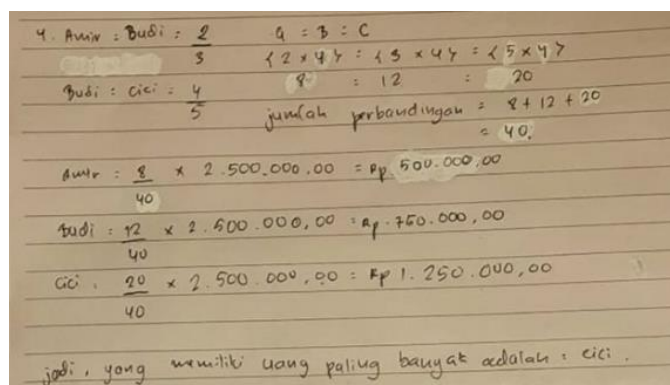 4. Amir : Budi : 2/3 a : B : C
(2 x 4) : (3 x 4) : (5 x 4)
Budi : Cici : 4/5 8 : 12 : 20
jumlah perbandingan = 8 + 12 + 20
= 40.
Amir : 8/40 x 2.500.000,00 = Rp 500.000,00
Budi : 12/40 x 2.500.000,00 = Rp.750.000,00
Cici . 20/40 x 2.500.000,00 = Rp 1.250.000,00
jadi, yang memiliki uang paling banyak adalah : cici.